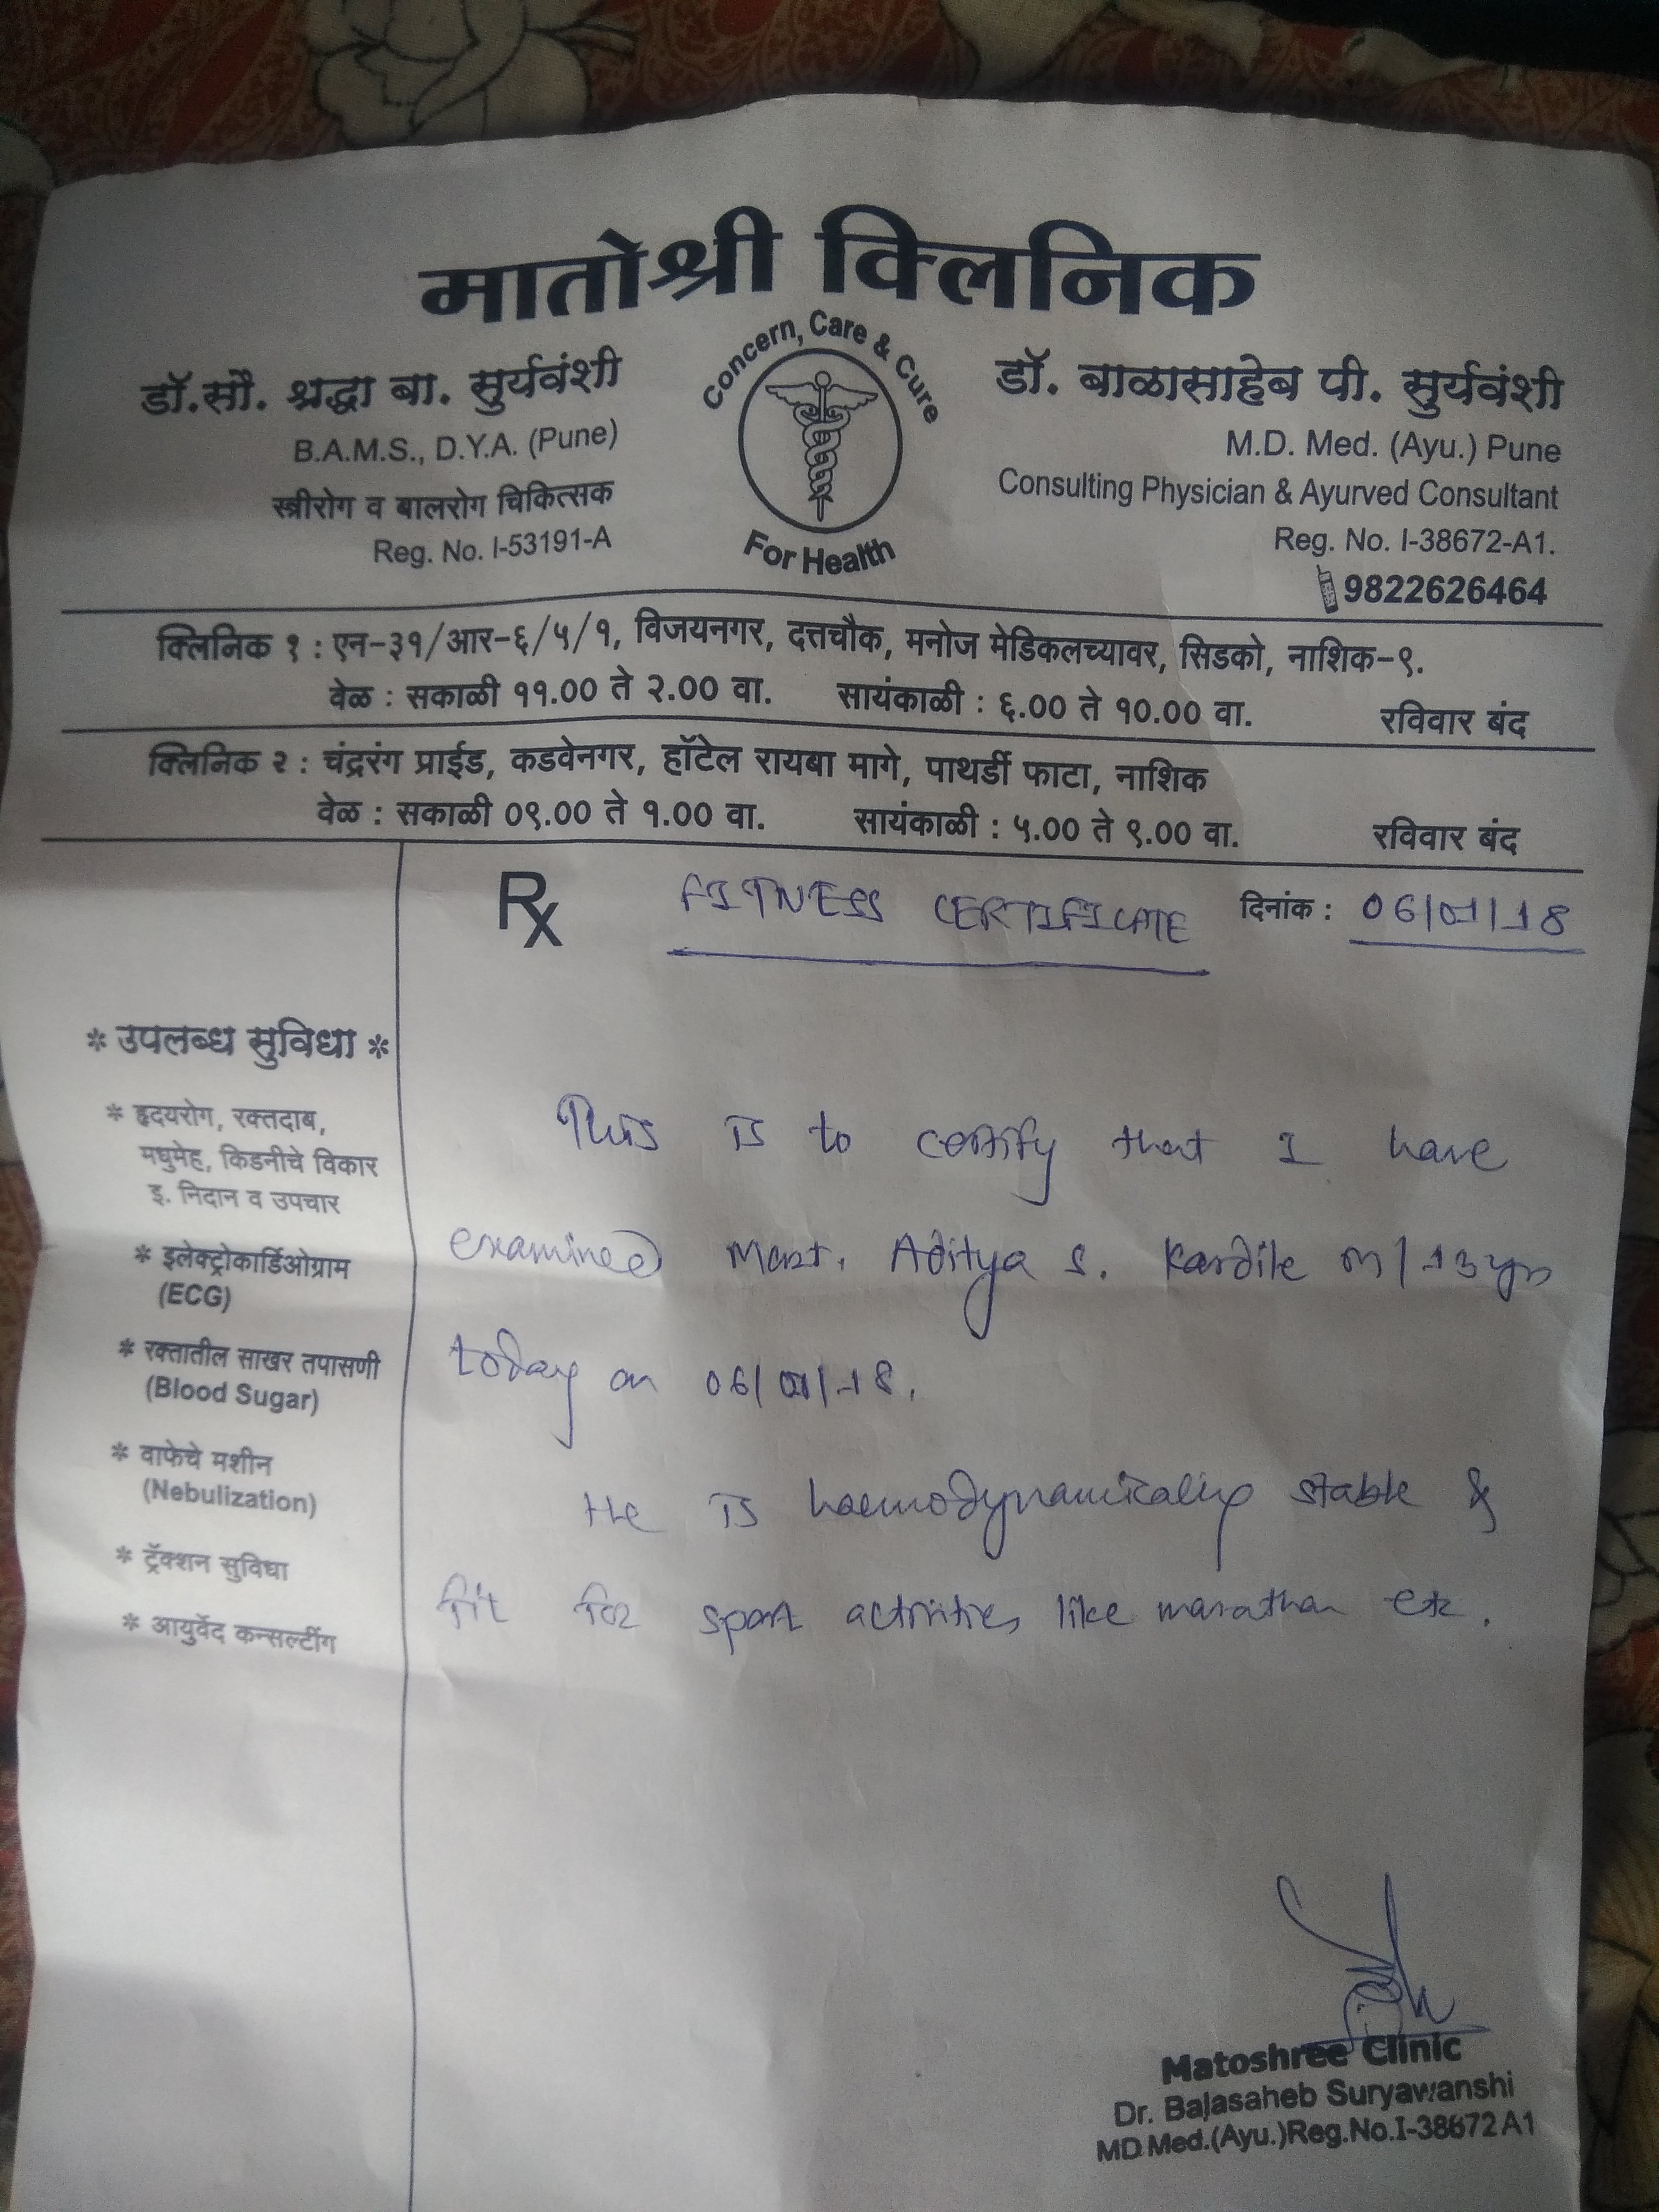 मातोश्री क्लिनिक
Concern, Care & Cure
For Health
डॉ.सौ. श्रद्धा बा. सुर्यवंशी
B.A.M.S., D.Y.A. (Pune)
स्त्रीरोग व बालरोग चिकित्सक
Reg. No. I-53191-A
डॉ. बाळासाहेब पी. सुर्यवंशी
M.D. Med. (Ayu.) Pune
Consulting Physician & Ayurved Consultant
Reg. No. I-38672-A1.
9822626464
क्लिनिक १ : एन-३१/आर-६/५/१, विजयनगर, दत्तचौक, मनोज मेडिकलच्यावर, सिडको, नाशिक-९.
वेळ : सकाळी ११.00 ते २.00 वा. सायंकाळी : ६.00 ते १०.00 वा. रविवार बंद
क्लिनिक २ : चंद्ररंग प्राईड, कडवेनगर, हॉटेल रायबा मागे, पाथर्डी फाटा, नाशिक
वेळ : सकाळी ०९.00 ते १.00 वा. सायंकाळी : ५.00 ते ९.00 वा. रविवार बंद
Rx FITNESS CERTIFICATE दिनांक : 06/01/18
* उपलब्ध सुविधा *
* हृदयरोग, रक्तदाब,
मधुमेह, किडनीचे विकार
इ. निदान व उपचार
* इलेक्ट्रोकार्डिओग्राम
(ECG)
* रक्तातील साखर तपासणी
(Blood Sugar)
* वाफेचे मशीन
(Nebulization)
* ट्रॅक्शन सुविधा
* आयुर्वेद कन्सल्टींग
This is to certify that I have
examined Mast. Aditya S. Kardile M/13yrs
today on 06/01/18.
He is haemodynamically stable &
fit for sport activities like marathan etc.
Matoshree Clinic
Dr. Balasaheb Suryawanshi
MD Med.(Ayu.)Reg.No.I-38672 A1